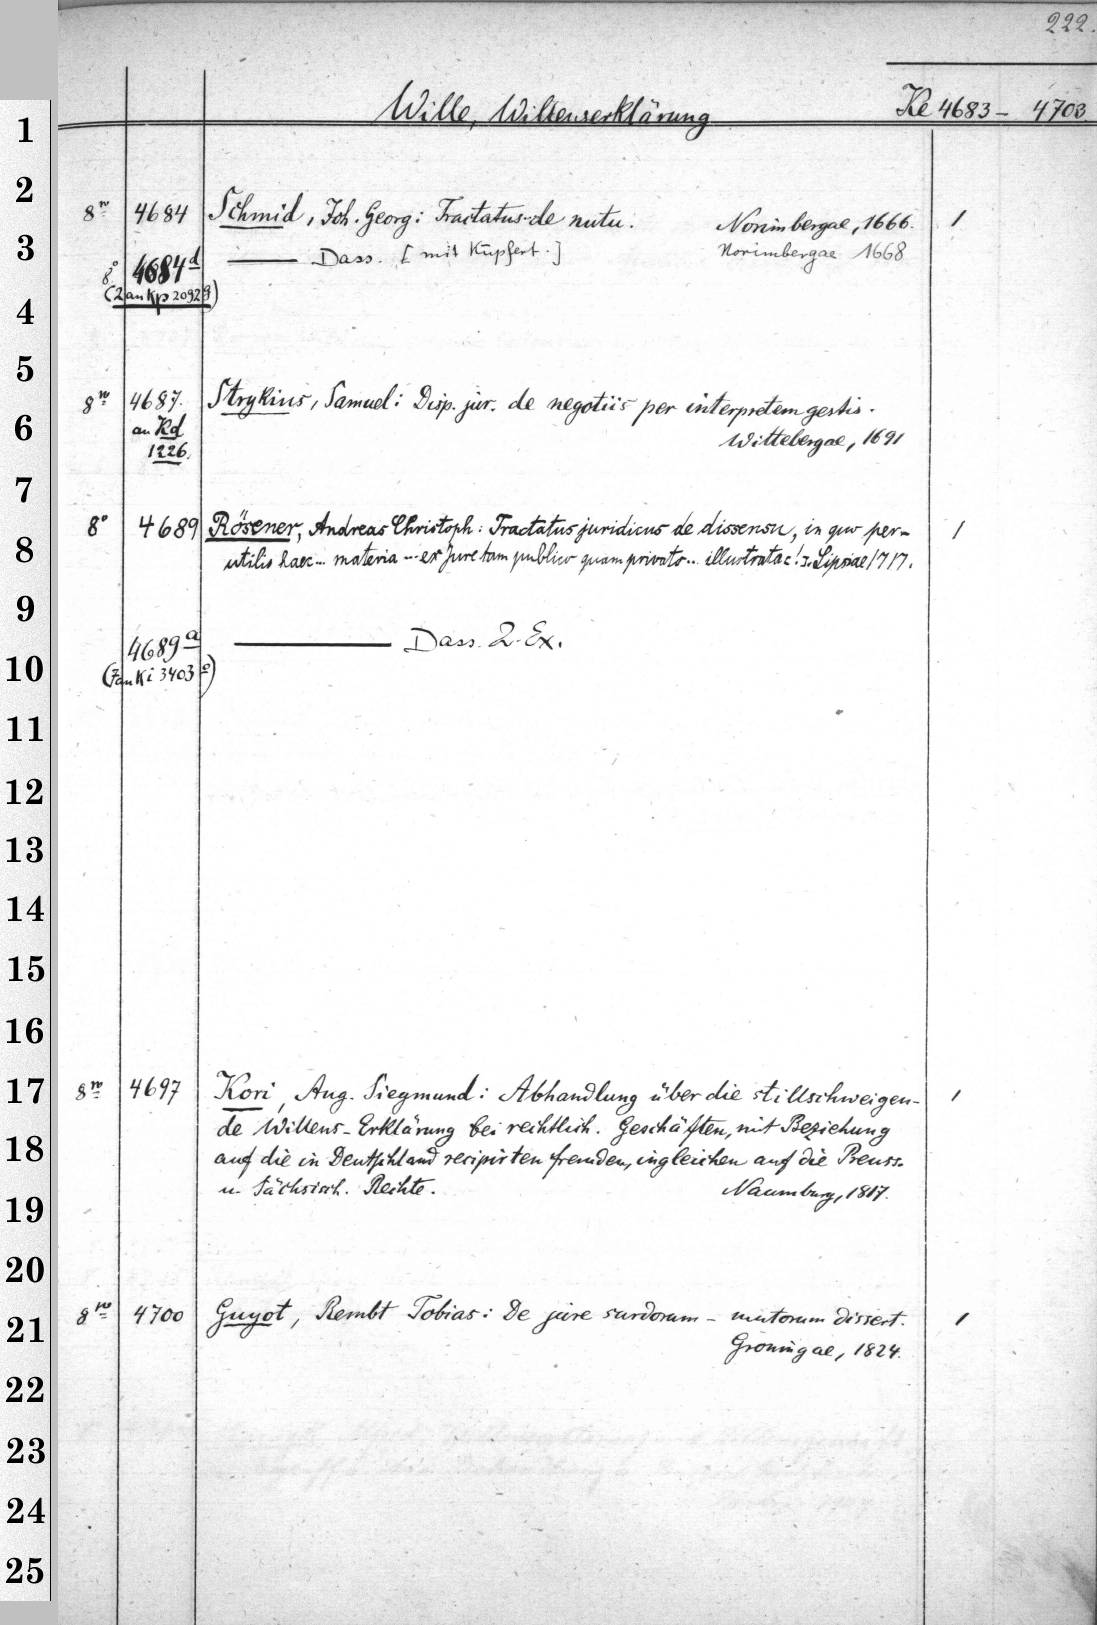 222.
Wille, Willenserklärung Ke 4683 – 4703
1
2
8vo 4684 Schmid, Joh. Georg: Tractatus de nutu. Norimbergae, 1666. 1
3
8° 4684d ——— Dass. [mit Kupfert.] Norimbergae 1668
(2 an Kp 2092g)
4
5
8vo 4687. Strykius, Samuel: Disp. jur. de negotiis per interpretem gestis.
6
an Kd Wittebergae, 1691
1226.
7
8° 4689 Rösener, Andreas Christoph: Tractatus juridicus de dissensu, in quo per-
8
utilis haec... materia... ex Jure tam publico quam privato.. illustratae [!]. Lipsiae 1717. 1
9
4689a ——— Dass. 2. Ex.
10
(7 an Ki 3403o)
11
12
13
14
15
16
17
8vo 4697 Kori, Aug. Siegmund: Abhandlung über die stillschweigen- 1
de Willens-Erklärung bei rechtlich. Geschäften, mit Beziehung
18
auf die in Deutschland recipirten fremden, ingleichen auf die Preuss.
u. Sächsisch. Rechte. Naumburg, 1817.
19
20
21
8vo 4700 Guyot, Rembt Tobias: De jure surdorum – mutorum dissert. 1
Groningae, 1824.
22
23
24
25